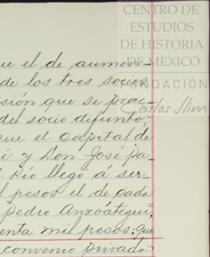 CENTRO DE
ESTUDIOS
DE HISTORIA
DE MEXICO
FUNDACIÓN
Carlos Slim
que el de aumen-
de los tres socios
sión que se prac-
del socio difunto
que el capital de
é y Don José Ma-
l Rio llegó a ser
l pesos el de cada
Pedro Anzoátegui,
enta mil pesos; que
convenio privado